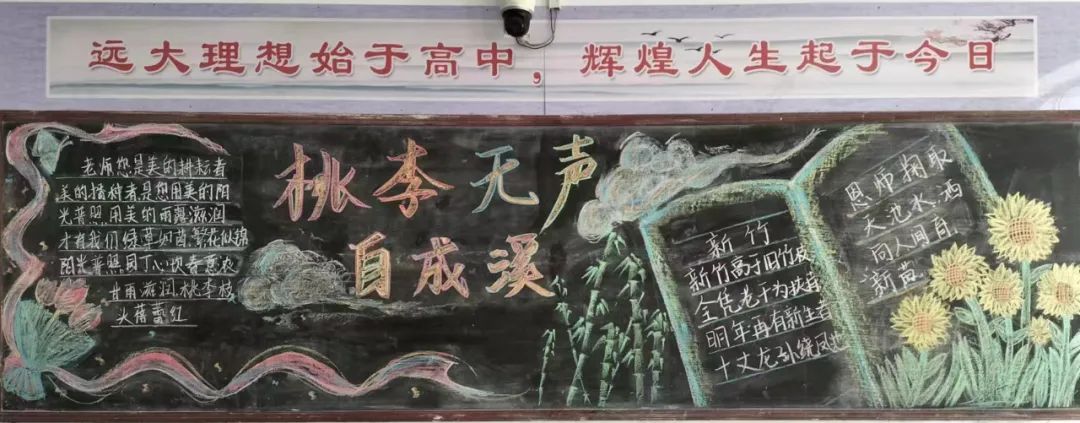 远大理想始于高中，辉煌人生起于今日
老师您是美的耕耘者
美的播种者是您用美的阳
光普照用美的雨露滋润
才有我们绿草如茵,繁花似锦
阳光普照园丁心坎春意浓
甘雨滋润桃李枝
头蓓蕾红
桃李无声
自成溪
新竹
新竹高于旧竹枝
全凭老干为扶持
明年再有新生者
十丈龙孙绕凤池
恩师掬取
天池水洒
向人间育
新苗